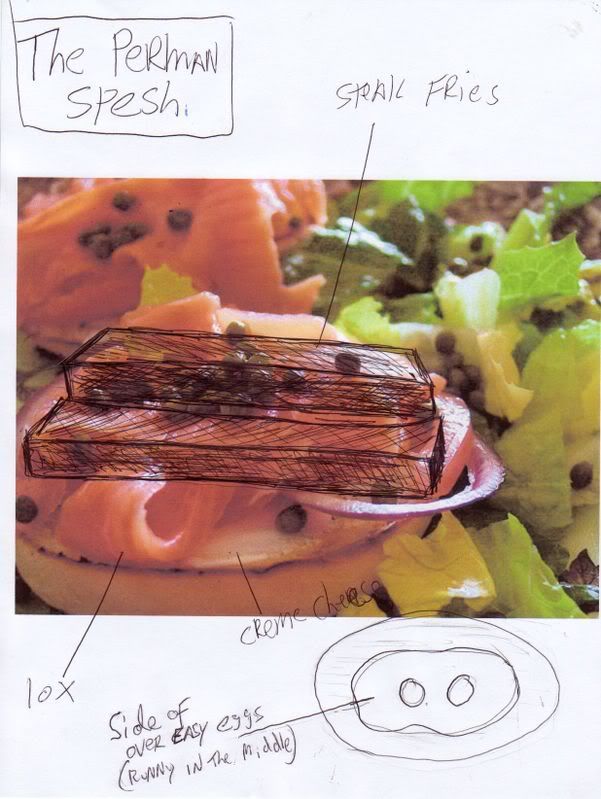 The PERMAN
SPESH.
STEAK FRIES
CREME Cheese
lox
Side of
OVER EASY eggs
(RUNNY IN The Middle)